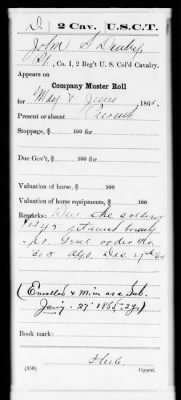 D | 2 Cav. | U.S.C.T.
John S Denby
Pvt., Co. I, 2 Reg't U. S. Col'd Cavalry.
Appears on
Company Muster Roll
for May & June 1865.
Present or absent Present
Stoppage, $ 100 for
Due Gov't, $ 100 for
Valuation of horse, $ 100
Valuation of horse equipments, $ 100
Remarks: Due the soldier
retained bounty
pr. Genl order No.
305 Dec. 27th 64
(Enrolled & M in as a Sub.
Jany. 27" 1865, 2 yr)
Book mark:
(358)
Copyist.